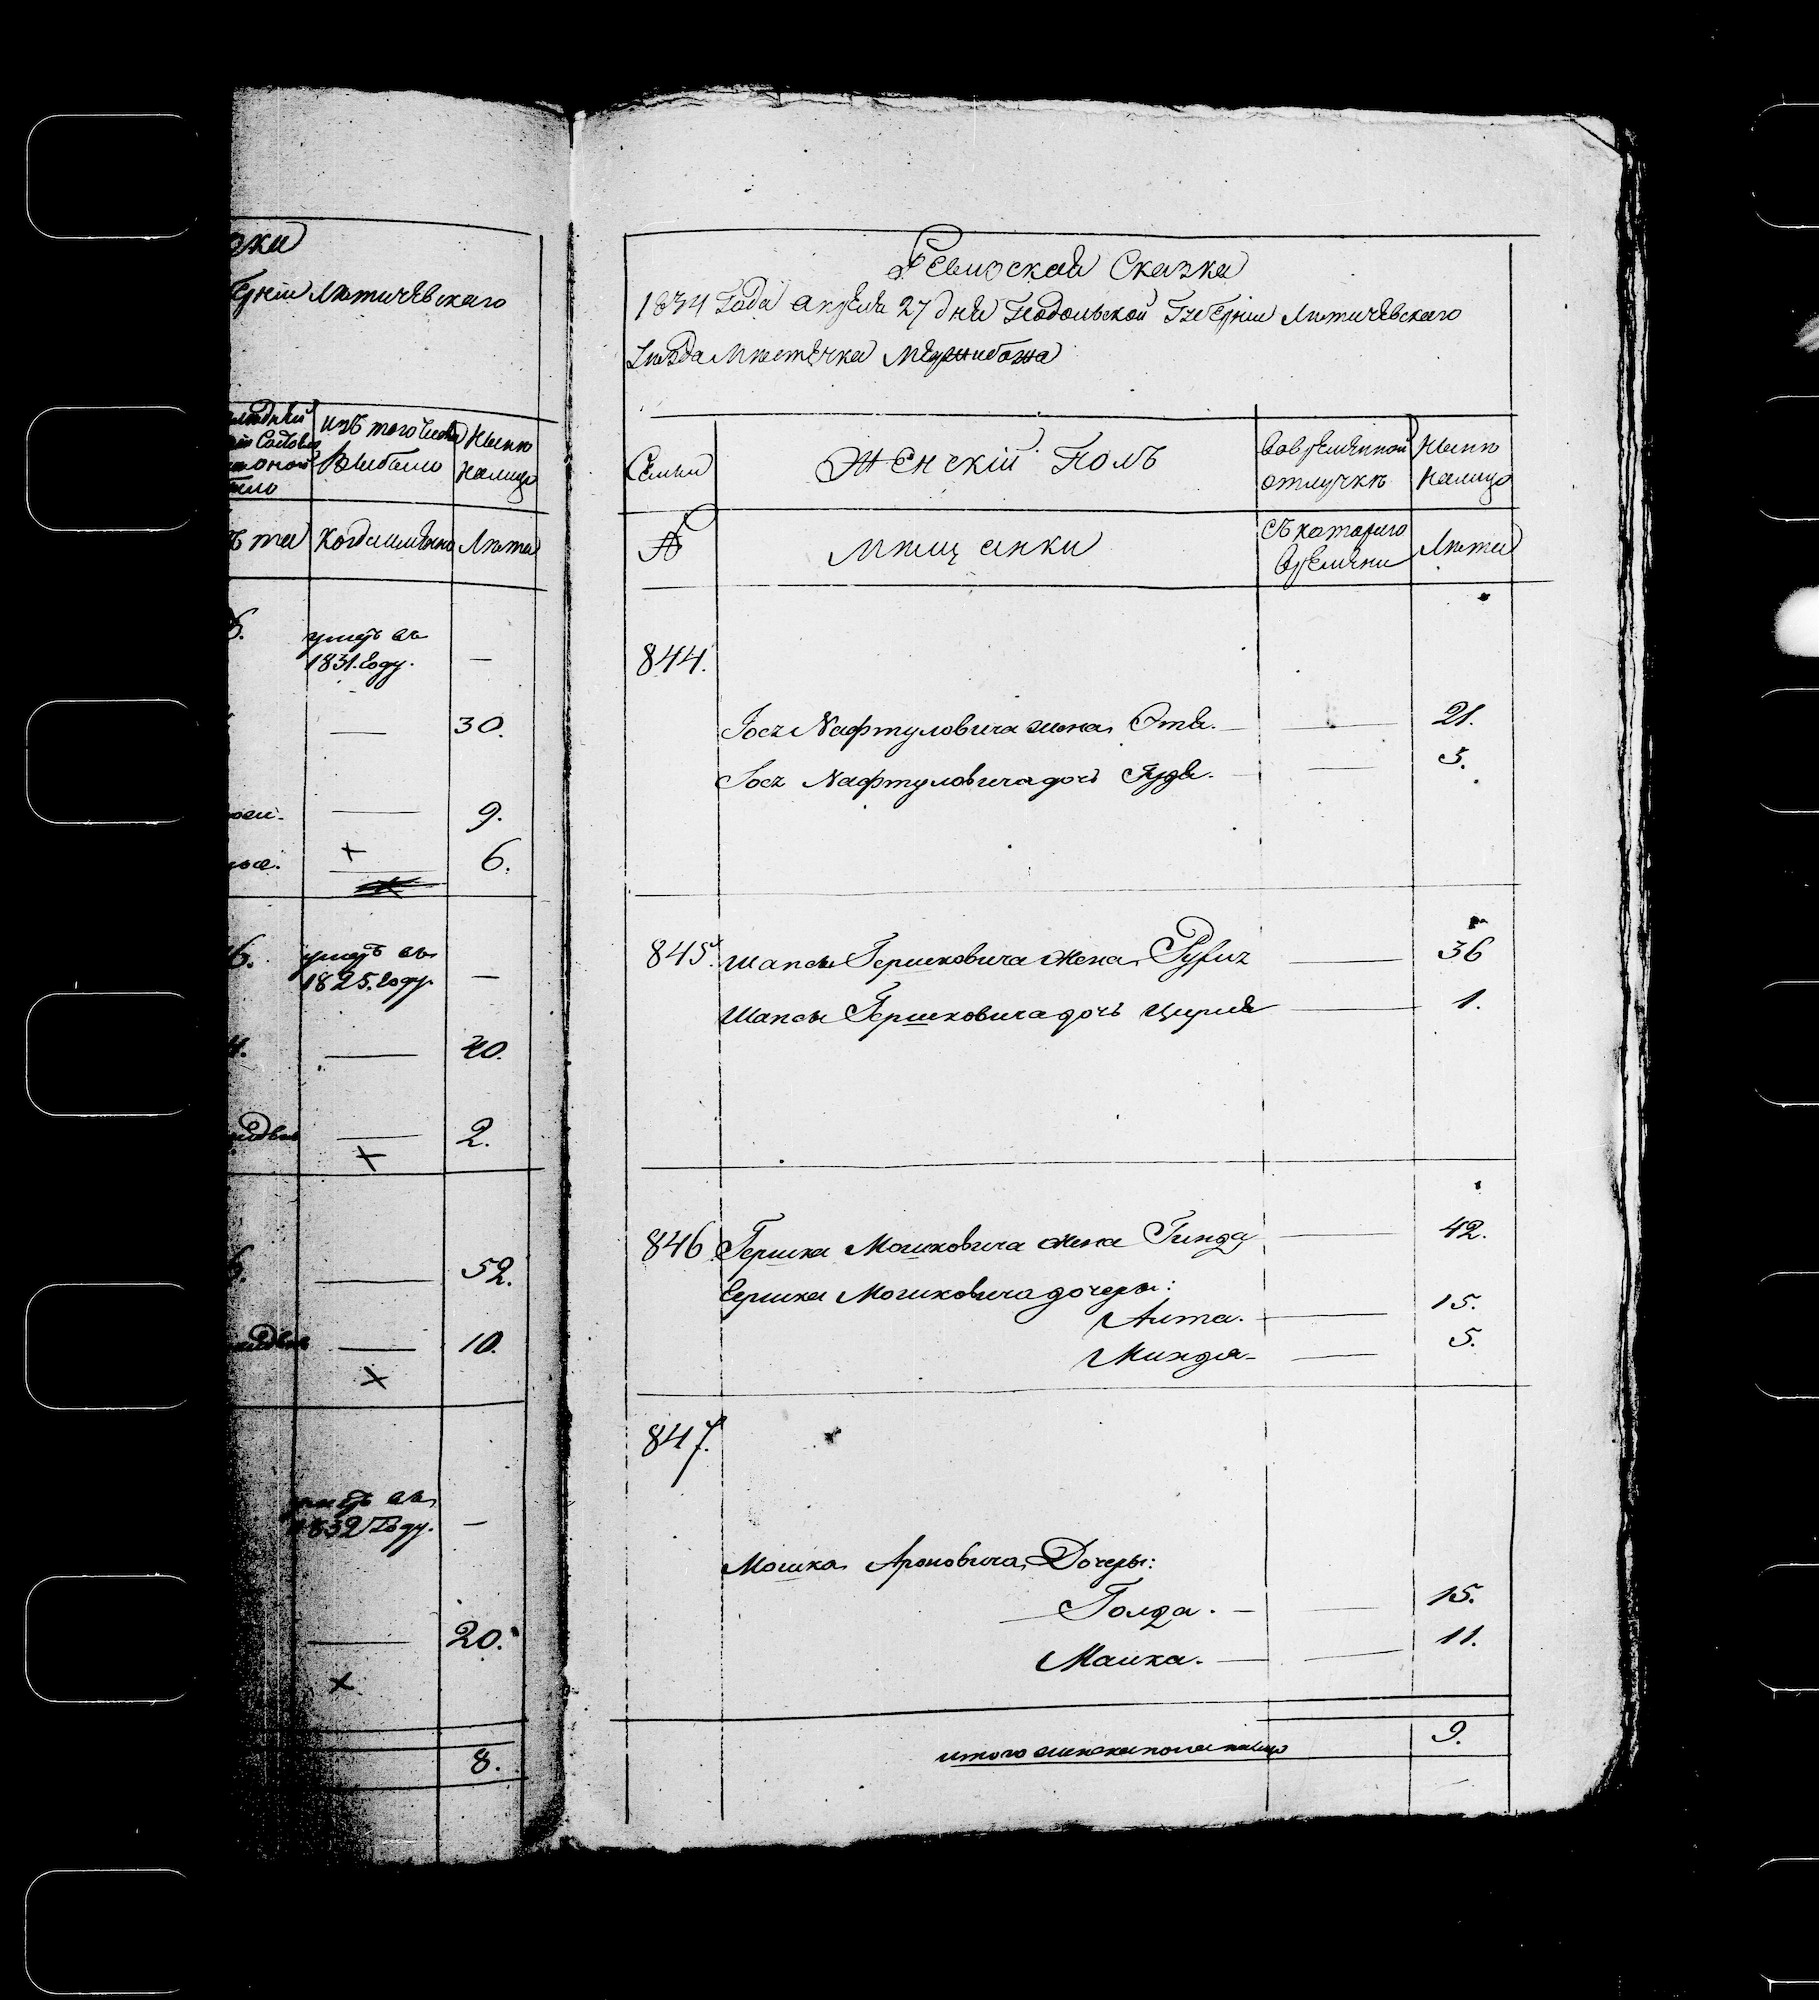 зки
Губерніи Летичевскаго
изъ того числа
выбыло
Ныне
налицо
Когда именно
Лета
умеръ въ
1831. году.
30.
9.
6.
умеръ въ
1825. году.
40.
2.
52.
10.
умеръ въ
1832 Году.
20.
8.
Ревизская Сказка
1834 Года апреля 27 дня Подольской Губерніи Летичевскаго
Уезда Местечка Меджибожа
Семьи
Женскій Полъ
Вовременной
отлучке
Ныне
налицо
№
Мещанки
Съ котораго
времени
Лета
844.
Іосъ Нафтуловича жена Этя. 21.
Іосъ Нафтуловича дочь Рудя. 5.
845. Шапсы Гершковича жена 36
Шапсы Гершковича дочь Цирля 1.
846 Гершка Мошковича жена Гинда 42.
Гершка Мошковича дочеры:
Анта. 15.
Миндя 5.
847.
Мошка Ароновича Дочеры:
Голда. 15.
Малка. 11.
итого женска пола налицо 9.